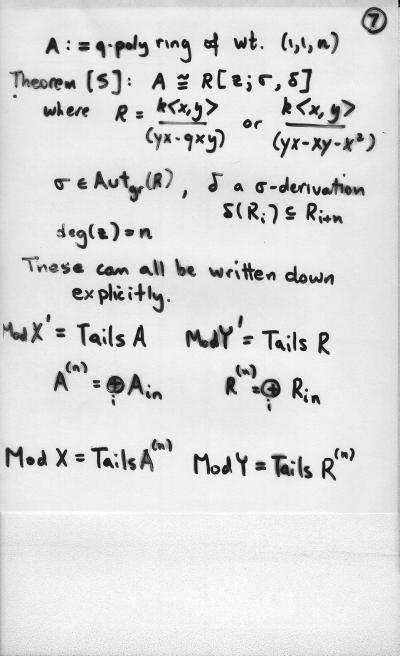 7
A := q-poly ring of wt. (1,1,n)
Theorem [S]: A ≅ R[z; σ, δ]
where R = k<x,y> / (yx-qxy) or k<x,y> / (yx-xy-x²)
σ ∈ Aut_gr(R), δ a σ-derivation
δ(R_i) ⊆ R_i+n
deg(z) = n
These can all be written down
explicitly.
Mod X' = Tails A Mod Y' = Tails R
A^(n) = ⊕_i A_in R^(n) = ⊕_i R_in
Mod X = Tails A^(n) Mod Y = Tails R^(n)